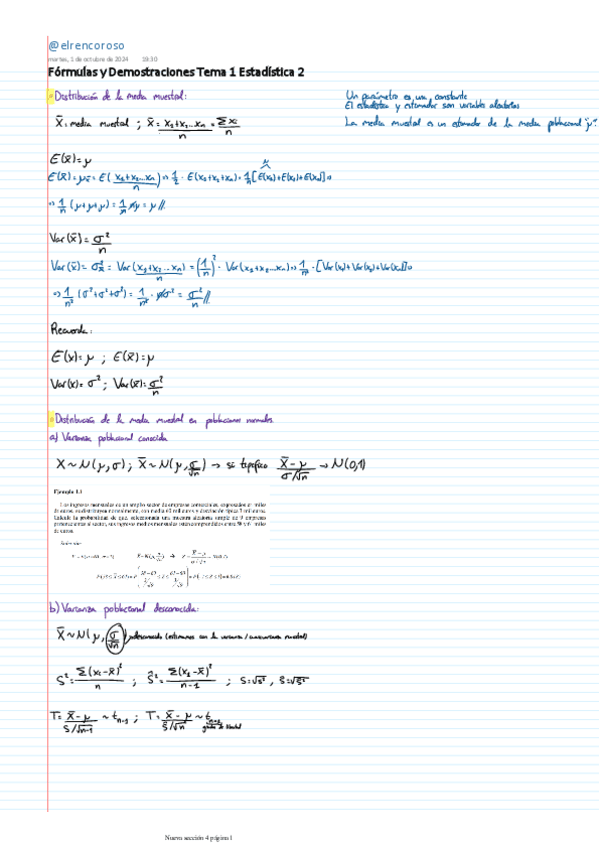 @elrencoroso
martes, 1 de octubre de 2024 19:30
Fórmulas y Demostraciones Tema 1 Estadística 2
Distribución de la media muestral:
Un parámetro es una constante
El estadístico y estimador son variables aleatorias
X̄: media muestral ; X̄ = (x₁+x₂...xₙ)/n = Σxᵢ/n
La media muestral es un estimador de la media poblacional "μ".
E(x̄)=μ
E(x̄)=μx̄ = E((x₁+x₂...xₙ)/n) => 1/2 · E(x₁+x₂+xₙ) = 1/n [E(x₁)+E(x₂)+E(xₙ)] =>
=> 1/n (μ+μ+μ) = 1/n · nμ = μ //
Var(x̄) = σ²/n
Var(x̄) = σ²x̄ = Var((x₁+x₂...xₙ)/n) = (1/n)² · Var(x₁+x₂...xₙ) => 1/n² · [Var(x₁)+Var(x₂)+Var(xₙ)] =>
=> 1/n² (σ²+σ²+σ²) = 1/n² · nσ² = σ²/n //
Recuerda:
E(x)=μ ; E(x̄)=μ
Var(x)=σ² ; Var(x̄)=σ²/n
Distribución de la media muestral en poblaciones normales.
a) Varianza poblacional conocida
X~N(μ,σ) ; X̄~N(μ,σ/√n) → si tipifico (X̄-μ)/(σ/√n) → N(0,1)
Ejemplo 1.1
b) Varianza poblacional desconocida:
X̄~N(μ,σ/√n) → desconocida (estimamos con la varianza / cuasivarianza muestral)
S² = Σ(xᵢ-x̄)²/n ; Ŝ² = Σ(xᵢ-x̄)²/(n-1) ; S=√S² , Ŝ=√Ŝ²
T = (X̄-μ)/(S/√n-1) ~ tₙ₋₁ ; T = (X̄-μ)/(Ŝ/√n) ~ tₙ₋₁
grados de libertad
Nueva sección 4 página 1